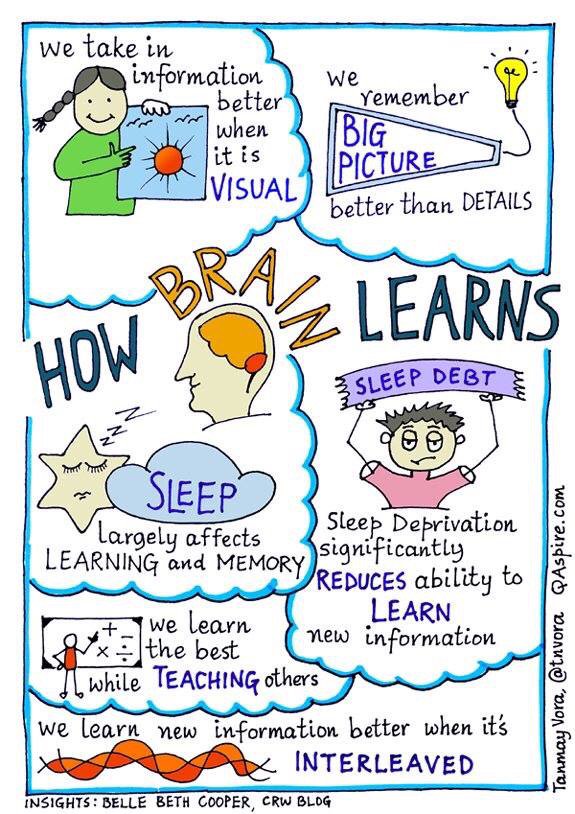 we take in
information
better
when
it is
VISUAL
we
remember
BIG
PICTURE
better than DETAILS
HOW BRAIN LEARNS
zzz
SLEEP
largely affects
LEARNING and MEMORY
SLEEP DEBT
Sleep Deprivation
significantly
REDUCES ability to
LEARN
new information
+ −
× ÷
we learn
the best
while TEACHING others
we learn new information better when it's
INTERLEAVED
Tanmay Vora, @tnvora QAspire.com
INSIGHTS: BELLE BETH COOPER, CRW BLOG